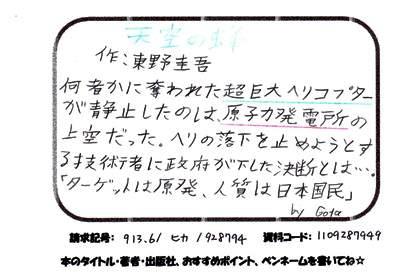 天空の蜂
作:東野圭吾
何者かに奪われた超巨大ヘリコプター
が静止したのは、原子力発電所の
上空だった。ヘリの落下を止めようとす
る技術者に政府が下した決断とは…。
「ターゲットは原発、人質は日本国民」
by Gota
請求記号: 913.6/ ヒカ /928794 資料コード: 1109287949
本のタイトル・著者・出版社、おすすめポイント、ペンネームを書いてね☆